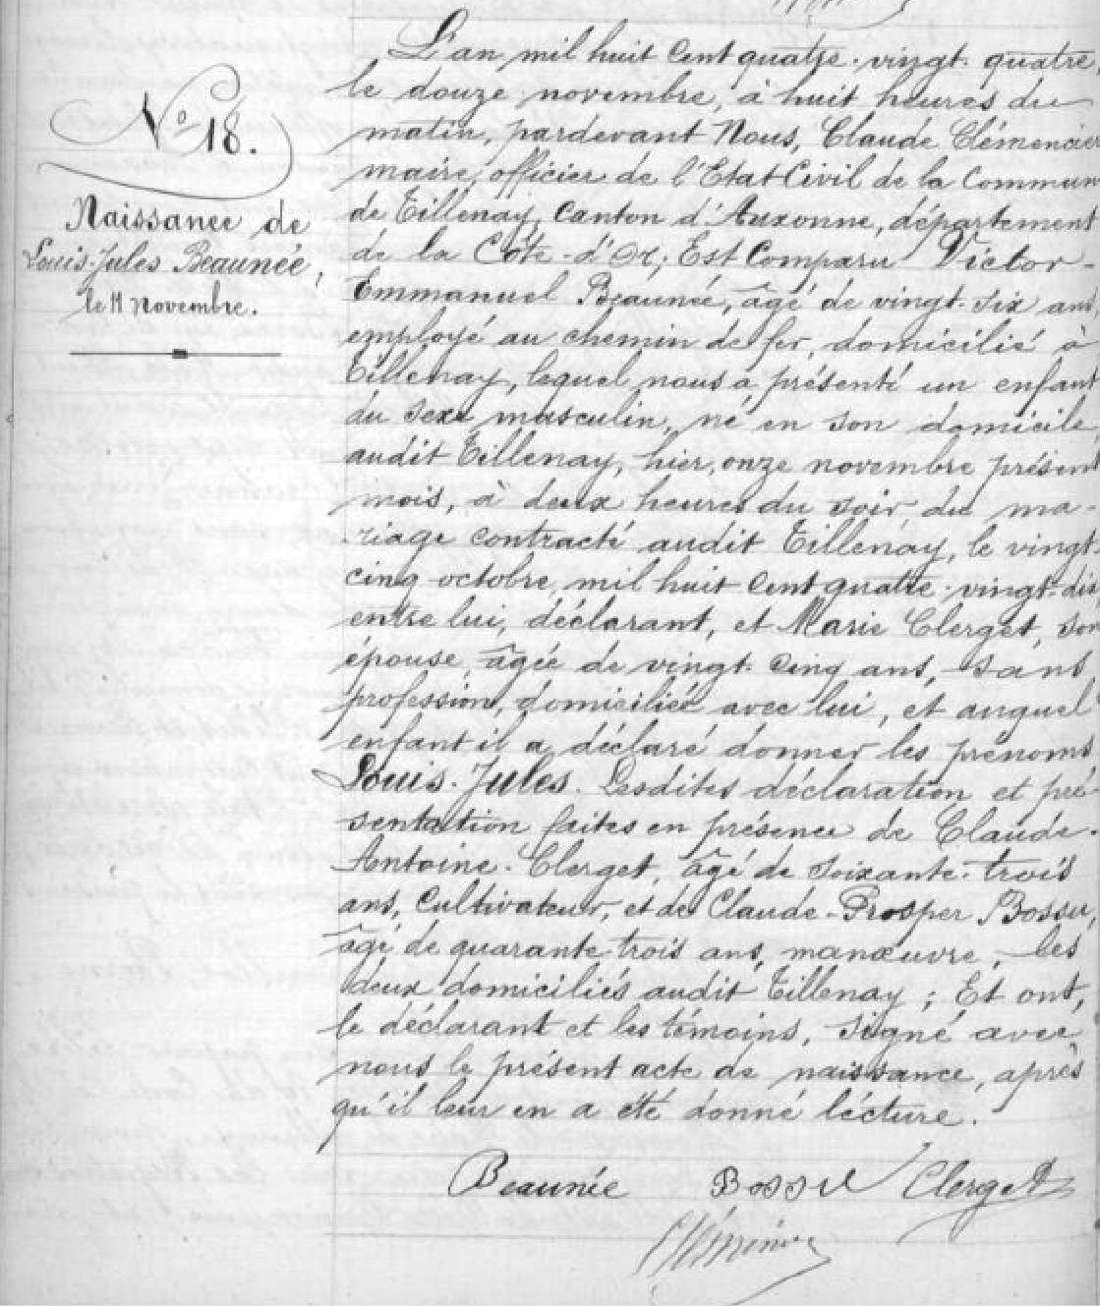 N° 18.
Naissance de
Louis-Jules Beaunée,
le 11 Novembre.
L'an mil huit cent quatre-vingt-quatre,
le douze novembre, à huit heures du
matin, pardevant Nous, Claude Clémencier
maire, officier de l'Etat-Civil de la Commune
de Tillenay, Canton d'Auxonne, département
de la Côte-d'Or; Est Comparu Victor-
Emmanuel Beaunée, âgé de vingt-six ans,
employé au chemin de fer, domicilié à
Tillenay, lequel nous a présenté un enfant
du sexe masculin, né en son domicile
audit Tillenay, hier, onze novembre présent
mois, à deux heures du soir, du ma-
riage contracté audit Tillenay, le vingt-
cinq octobre, mil huit cent quatre-vingt-dix
entre lui, déclarant, et Marie Clerget, son
épouse, âgée de vingt-cinq ans, sans
profession, domiciliée avec lui, et auquel
enfant il a déclaré donner les prénoms
Louis-Jules. Lesdites déclaration et pré-
sentation faites en présence de Claude-
Antoine-Clerget, âgé de soixante-trois
ans, Cultivateur, et de Claude-Prosper Bossu,
âgé de quarante-trois ans, manœuvre, les
deux domiciliés audit Tillenay; Et ont,
le déclarant et les témoins, signé avec
nous le présent acte de naissance, après
qu'il leur en a été donné lécture.
Beaunée Bossu Clerget